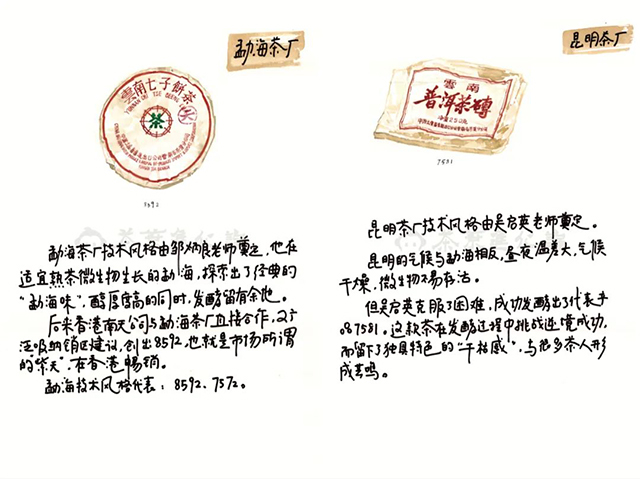 勐海茶厂
雲南七子餅茶
YUNNAN CHI TSE BEENG
茶
天
8592
勐海茶厂技术风格由邹炳良老师奠定，他在
适宜熟茶微生物生长的勐海，探索出了经典的
“勐海味”，醇厚度高的同时，发酵留有余地。
后来香港南天公司与勐海茶厂直接合作，又广
泛吸纳销区建议，创出8592，也就是市场所谓
的“紫天”，在香港畅销。
勐海技术风格代表：8592、7572。
昆明茶厂
雲南
普洱茶磚
净重250克
7581
昆明茶厂技术风格由吴启英老师奠定。
昆明的气候与勐海相反，昼夜温差大，气候
干燥，微生物不易存活。
但吴启英克服了困难，成功发酵出了代表
的7581。这款茶在发酵过程中挑战逆境成功，
而留下了独具特色的“干枯感”，与很多茶人形
成共鸣。